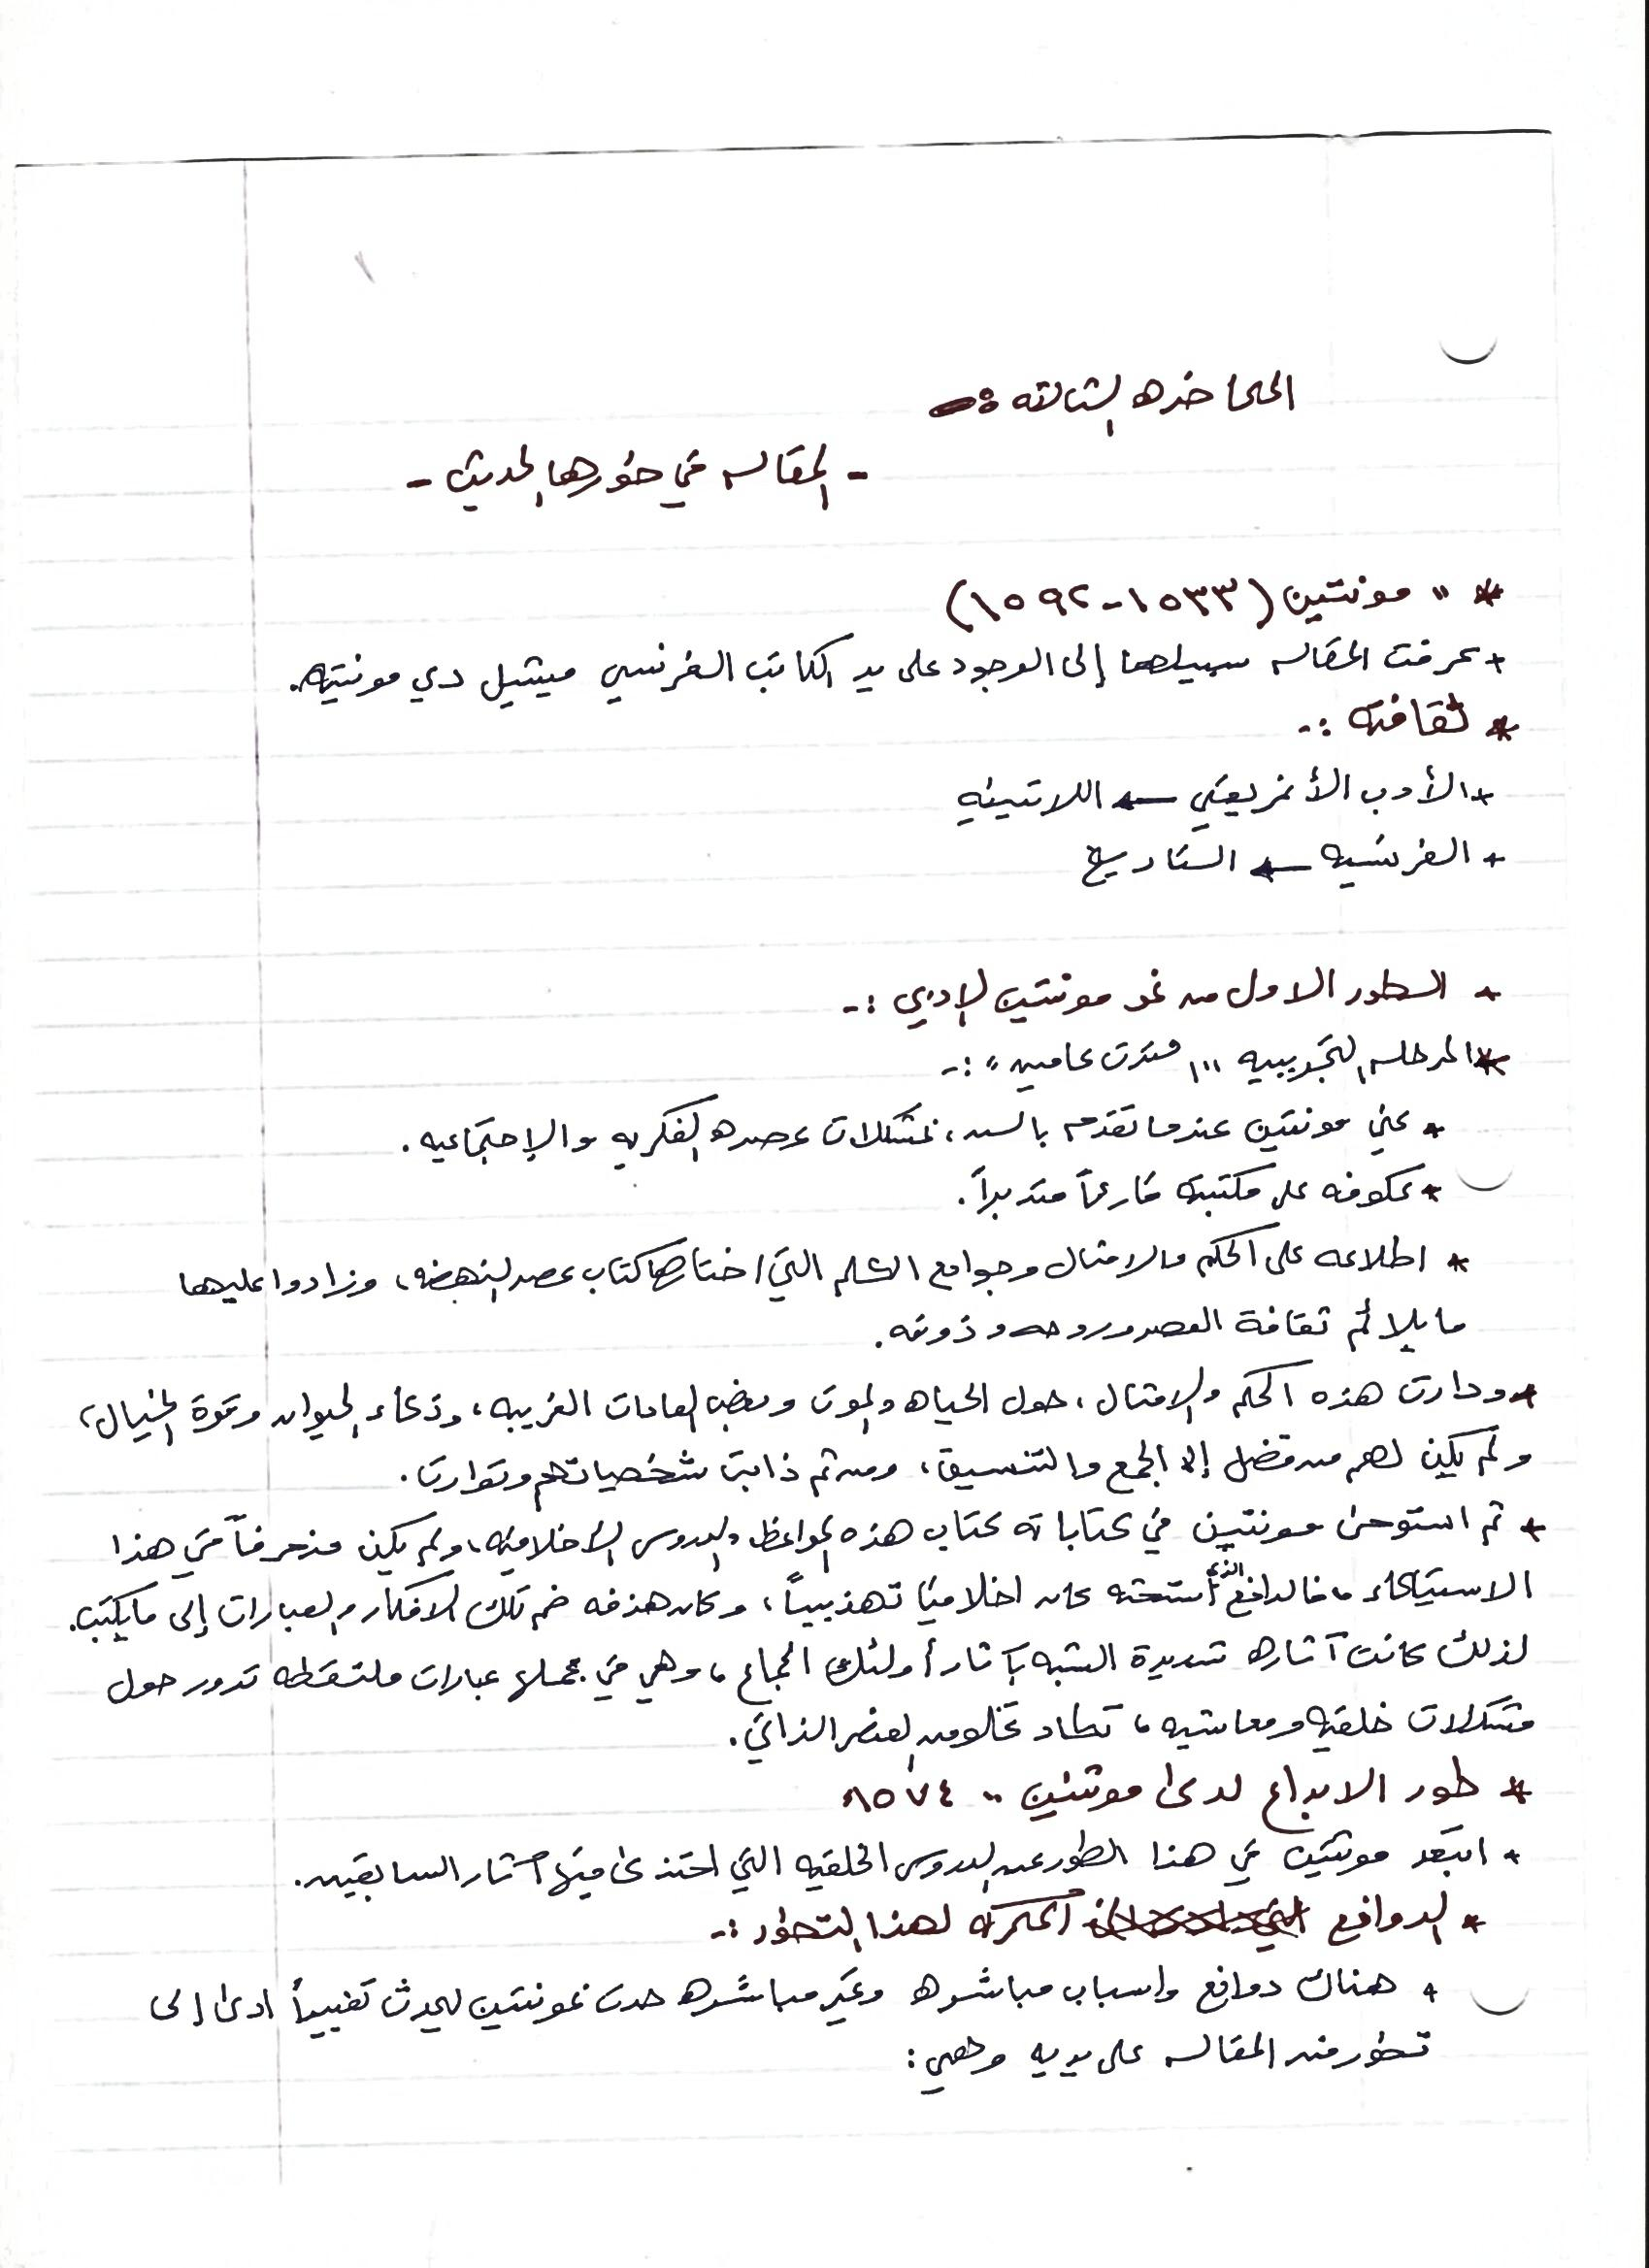 المحاضره الثالثه :-
- المقاله في طورها الحديث -
* " مونتين (١٥٣٣-١٥٩٢)
* عرفت المقاله سبيلها إلى الوجود على يد الكاتب الفرنسي ميشيل دي مونتيه.
* ثقافته :-
* الأدب الأغريقي ← اللاتينيه
* الفرنسيه ← التاريخ
* الطور الاول من نمو مونتين الادبي :-
* المرحله التجريبيه "" امتدت عامين " :-
* عني مونتين عندما تقدم بالسن، بمشكلات عصره الفكريه والإجتماعيه.
* عكوفه على مكتبته قارئاً متدبراً.
* اطلاعه على الحكم والامثال وجوامع الكلم التي اختارها كتاب عصر النهضه، وزادوا عليها
ما يلائم ثقافة العصر وروحه وذوقه.
* ودارت هذه الحكم والامثال، حول الحياه والموت وبعض العادات الغريبه، وذكاء الحيوان وقوة الخيال،
ولم يكن لهم من فضل إلا الجمع والتنسيق، ومن ثم ذابت شخصياتهم وتوارت.
* ثم استوحى مونتين في كتاباته كتاب هذه المواعظ والدروس الأخلاقيه، ولم يكن منحرفاً في هذا
الاستيحاء، فالدافع الذي أستحثه كان اخلاقيا تهذيبياً، وكان هدفه ضم تلك الافكار والعبارات إلى ما يكتب.
لذلك كانت آثاره شديدة الشبه بآثار أولئك الجماع، وهي في مجملها عبارات ملتقطه تدور حول
مشكلات خلقيه ومعاشيه، تكاد تخلو من العنصر الذاتي.
* طور الابداع لدى مونتين " ١٥٧٤
* ابتعد مونتين في هذا الطور عن الدروس الخلقيه التي احتذى فيها آثار السابقين.
* الدوافع المحركه لهذا التطور :-
* هناك دوافع واسباب مباشره وغير مباشره حدت بمونتين ليحدث تغييراً ادى إلى
تطور فن المقاله على يديه وهي :